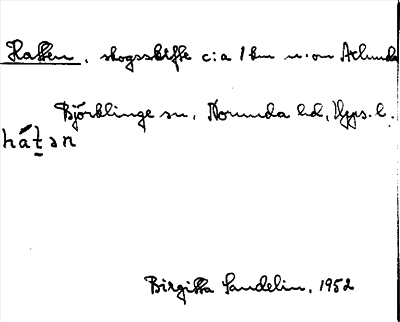 Hatten, skogsskifte c:a 1 km n. om Arlunda
Björklinge sn, Norunda hd, Upps. l.
hát̠ən
Birgitta Sandelin, 1952